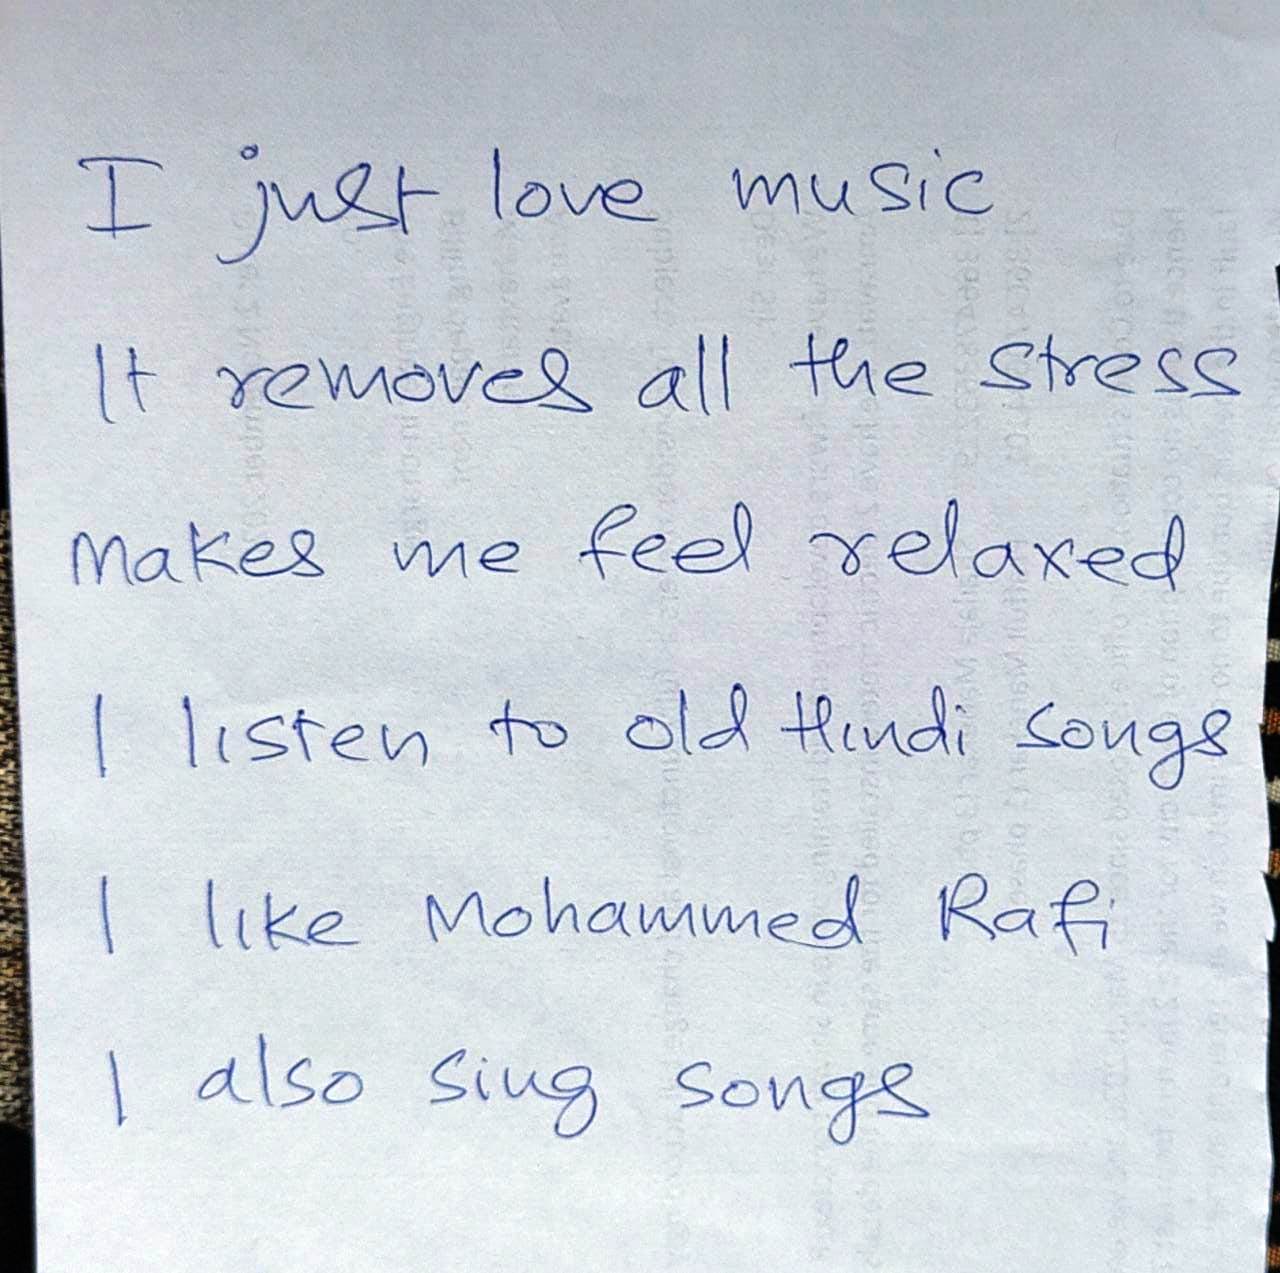 I just love music
It removes all the stress
Makes me feel relaxed
I listen to old Hindi songs
I like Mohammed Rafi
I also sing songs